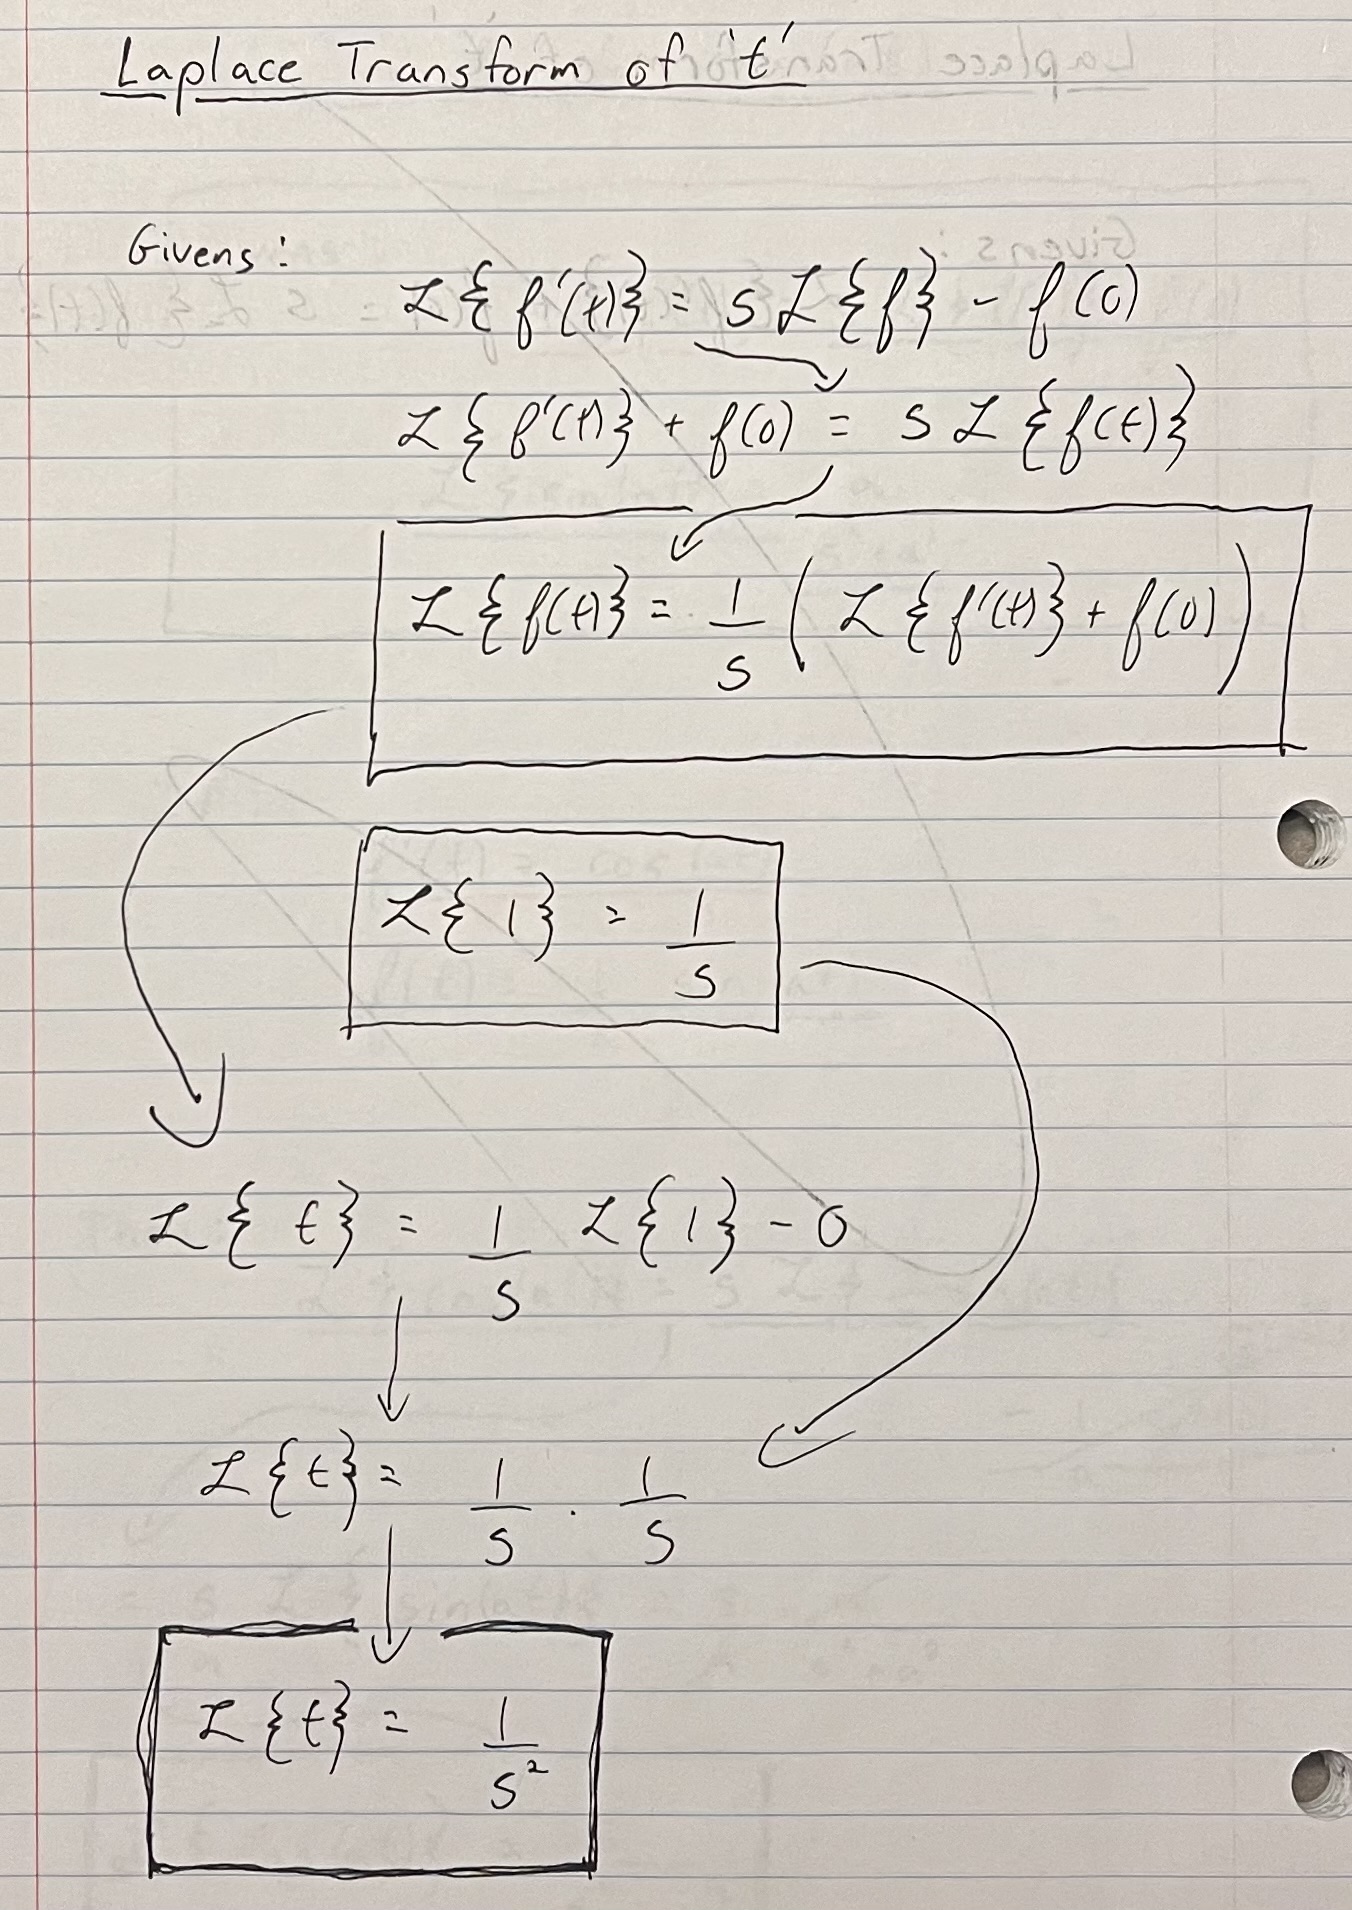 Laplace Transform of 't'
Givens:
ℒ{f'(t)} = sℒ{f} - f(0)
ℒ{f'(t)} + f(0) = sℒ{f(t)}
ℒ{f(t)} = 1/s (ℒ{f'(t)} + f(0))
ℒ{1} = 1/s
ℒ{t} = 1/s ℒ{1} - 0
ℒ{t} = 1/s · 1/s
ℒ{t} = 1/s²